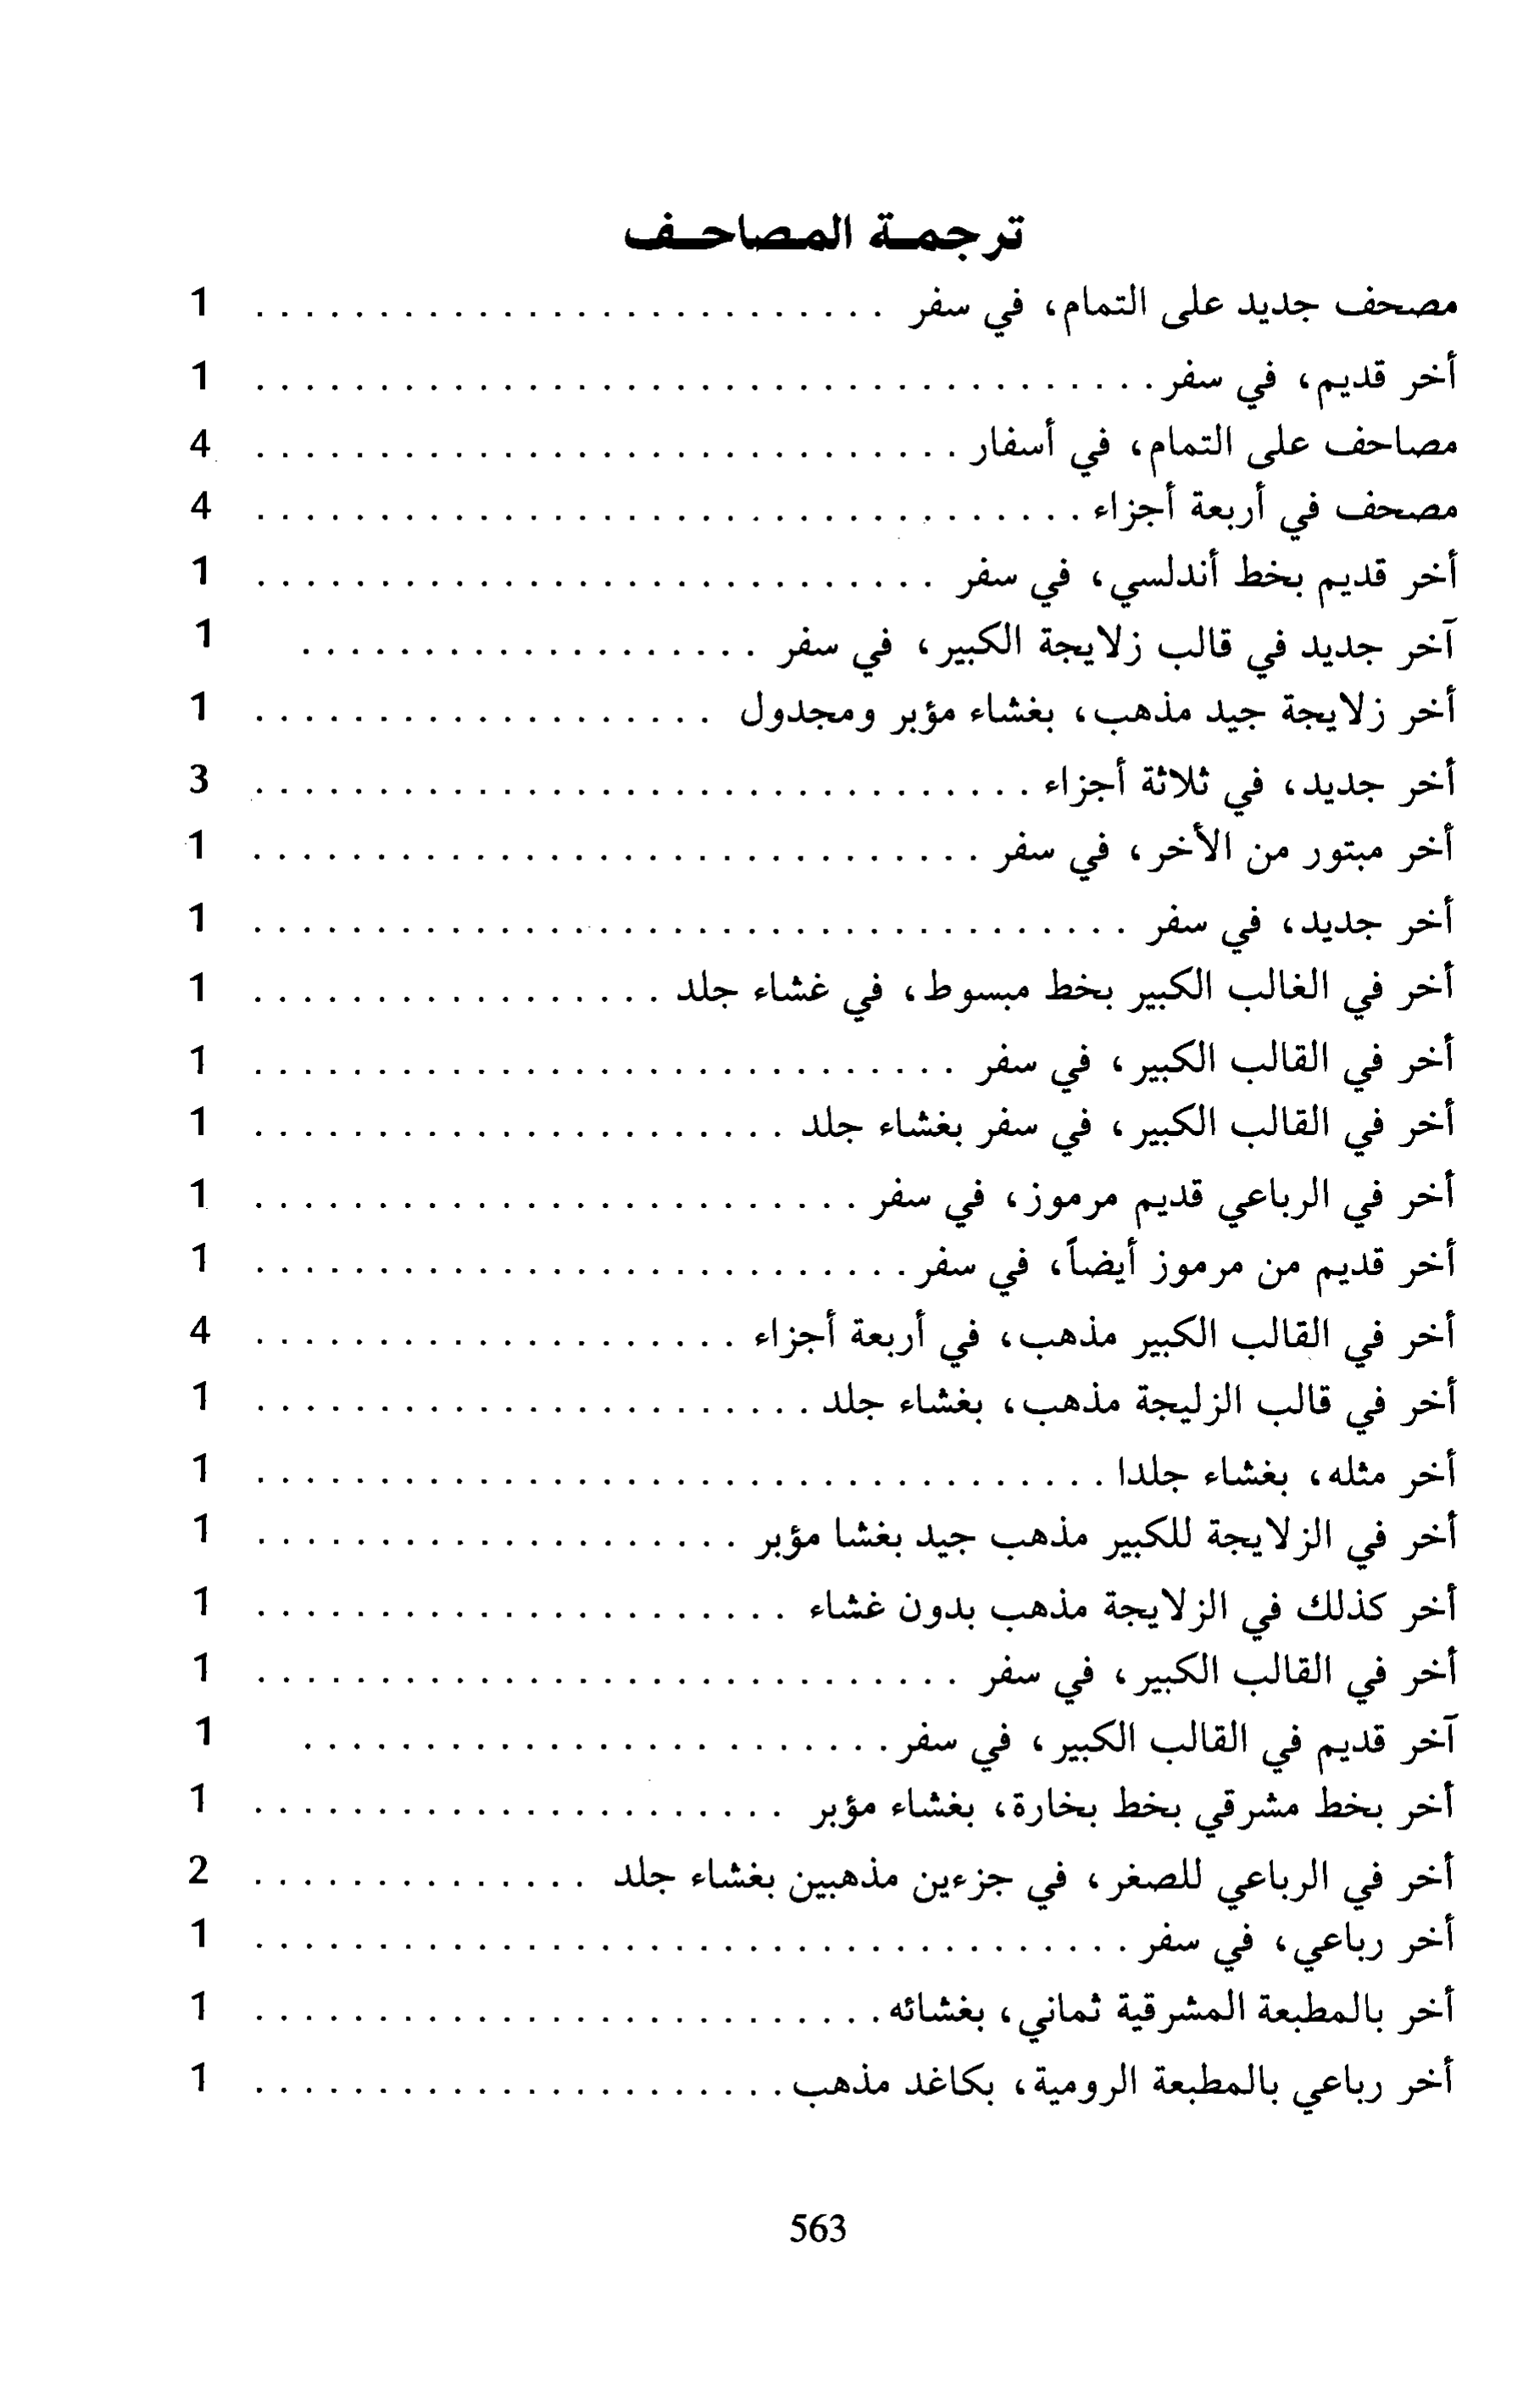 ترجمـة المصاحـف
مصحف جديد على التمام، في سفر . . . . . . . . . . . . . . . . . . . . . . . . . . 1
أخر قديم، في سفر . . . . . . . . . . . . . . . . . . . . . . . . . . . . . . . . . . . . . 1
مصاحف على التمام، في أسفار . . . . . . . . . . . . . . . . . . . . . . . . . . . . . 4
مصحف في أربعة أجزاء . . . . . . . . . . . . . . . . . . . . . . . . . . . . . . . . . . 4
أخر قديم بخط أندلسي، في سفر . . . . . . . . . . . . . . . . . . . . . . . . . . . . 1
آخر جديد في قالب زلايجة الكبير، في سفر . . . . . . . . . . . . . . . . . . . 1
أخر زلايجة جيد مذهب، بغشاء مؤبر ومجدول . . . . . . . . . . . . . . . . . . . 1
أخر جديد، في ثلاثة أجزاء . . . . . . . . . . . . . . . . . . . . . . . . . . . . . . . . 3
أخر مبتور من الأخر، في سفر . . . . . . . . . . . . . . . . . . . . . . . . . . . . . . 1
أخر جديد، في سفر . . . . . . . . . . . . . . . . . . . . . . . . . . . . . . . . . . . . 1
أخر في الغالب الكبير بخط مبسوط، في غشاء جلد . . . . . . . . . . . . . . . . . 1
أخر في القالب الكبير، في سفر . . . . . . . . . . . . . . . . . . . . . . . . . . . . . 1
أخر في القالب الكبير، في سفر بغشاء جلد . . . . . . . . . . . . . . . . . . . . . . 1
أخر في الرباعي قديم مرموز، في سفر . . . . . . . . . . . . . . . . . . . . . . . . . 1
أخر قديم من مرموز أيضاً، في سفر . . . . . . . . . . . . . . . . . . . . . . . . . . . 1
أخر في القالب الكبير مذهب، في أربعة أجزاء . . . . . . . . . . . . . . . . . . . . 4
أخر في قالب الزليجة مذهب، بغشاء جلد . . . . . . . . . . . . . . . . . . . . . . . 1
أخر مثله، بغشاء جلدا . . . . . . . . . . . . . . . . . . . . . . . . . . . . . . . . . . . 1
أخر في الزلايجة للكبير مذهب جيد بغشا مؤبر . . . . . . . . . . . . . . . . . . . . 1
أخر كذلك في الزلايجة مذهب بدون غشاء . . . . . . . . . . . . . . . . . . . . . . 1
أخر في القالب الكبير، في سفر . . . . . . . . . . . . . . . . . . . . . . . . . . . . . 1
آخر قديم في القالب الكبير، في سفر . . . . . . . . . . . . . . . . . . . . . . . . 1
أخر بخط مشرقي بخط بخارة، بغشاء مؤبر . . . . . . . . . . . . . . . . . . . . . . 1
أخر في الرباعي للصغر، في جزءين مذهبين بغشاء جلد . . . . . . . . . . . . . . 2
أخر رباعي، في سفر . . . . . . . . . . . . . . . . . . . . . . . . . . . . . . . . . . . . 1
أخر بالمطبعة المشرقية ثماني، بغشائه . . . . . . . . . . . . . . . . . . . . . . . . . . 1
أخر رباعي بالمطبعة الرومية، بكاغد مذهب . . . . . . . . . . . . . . . . . . . . . . 1
563